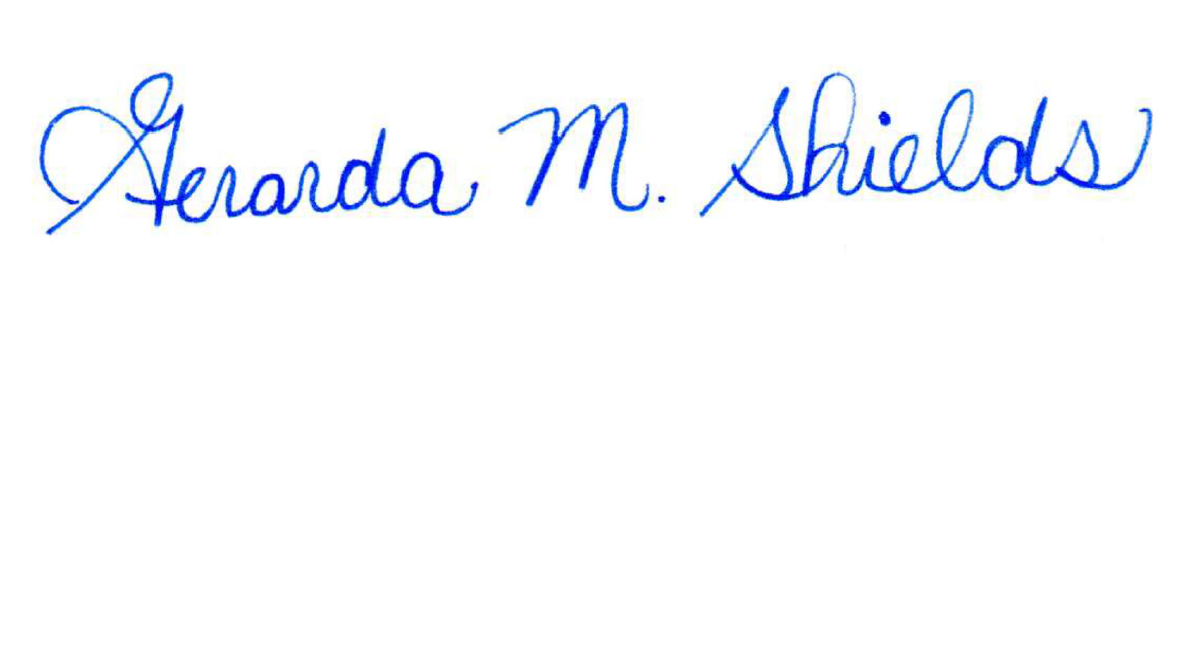 Gerarda M. Shields